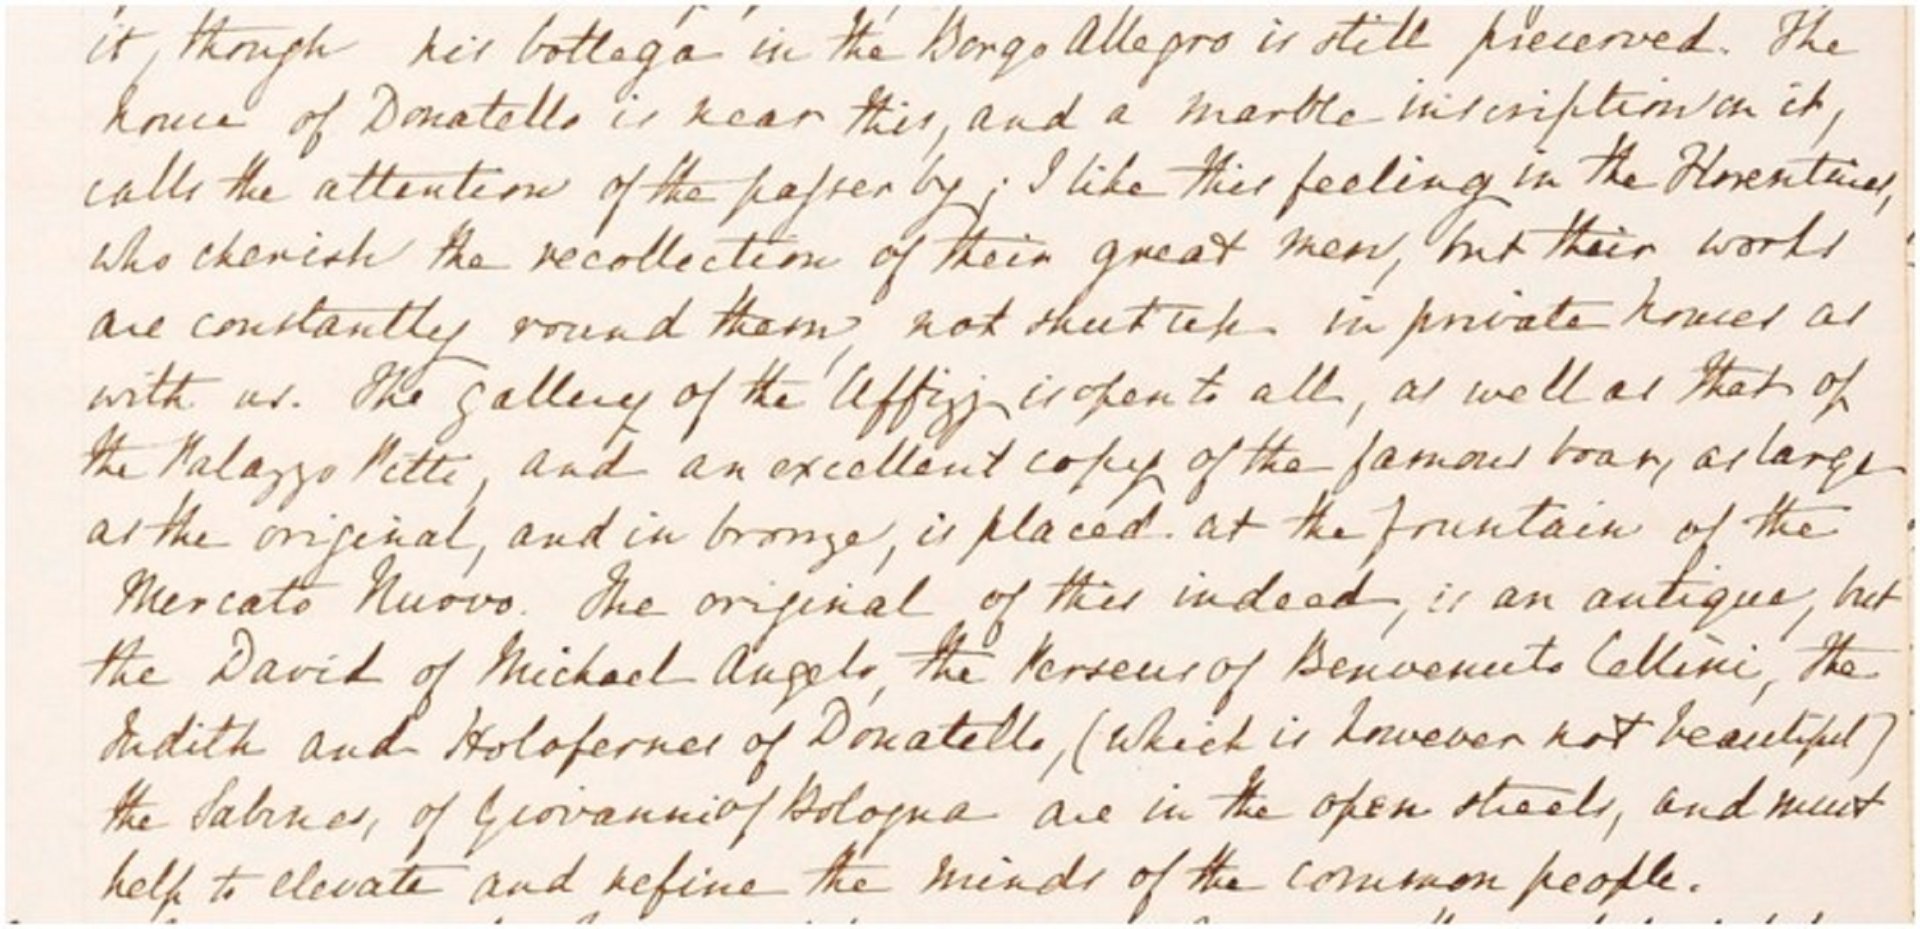 it, though his bottega in the Borgo Allegro is still preserved. The
house of Donatello is near this, and a marble inscription on it,
calls the attention of the passer by; I like this feeling in the Florentines,
who cherish the recollection of their great men, but their works
are constantly round them, not shut up in private houses as
with us. The gallery of the Uffizj is open to all, as well as that of
the Palazzo Pitti, and an excellent copy of the famous boar, as large
as the original, and in bronze, is placed at the fountain of the
Mercato Nuovo. The original of this indeed, is an antique, but
the David of Michael Angelo, the Perseus of Benvenuto Cellini, the
Judith and Holofernes of Donatello, (which is however not beautiful)
the Sabines, of Giovanni of Bologna are in the open streets, and must
help to elevate and refine the minds of the common people.